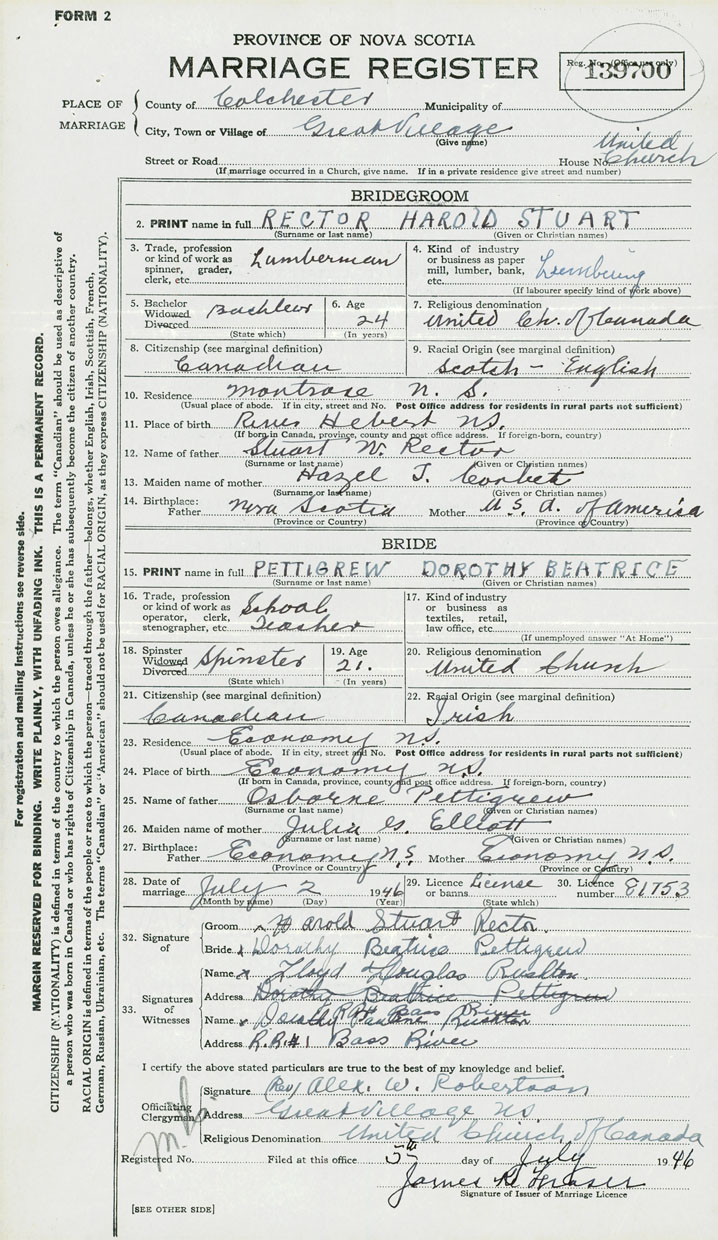 FORM 2
PROVINCE OF NOVA SCOTIA
MARRIAGE REGISTER
Reg. No. (Office use only)
139700
PLACE OF MARRIAGE
County of Colchester Municipality of
City, Town or Village of Great Village
(Give name)
United Church
Street or Road House No.
(If marriage occurred in a Church, give name. If in a private residence give street and number)
BRIDEGROOM
2. PRINT name in full RECTOR HAROLD STUART
(Surname or last name) (Given or Christian names)
3. Trade, profession or kind of work as spinner, grader, clerk, etc. Lumberman
4. Kind of industry or business as paper mill, lumber, bank, etc. Lumbering
(If labourer specify kind of work above)
5. Bachelor Widowed Divorced Bachelor
(State which)
6. Age 24
(In years)
7. Religious denomination
United Ch. of Canada
8. Citizenship (see marginal definition)
Canadian
9. Racial Origin (see marginal definition)
Scotch - English
10. Residence Montrose N. S.
(Usual place of abode. If in city, street and No. Post Office address for residents in rural parts not sufficient)
11. Place of birth River Hebert N.S.
(If born in Canada, province, county and post office address. If foreign-born, country)
12. Name of father Stuart W. Rector
(Surname or last name) (Given or Christian names)
13. Maiden name of mother Hazel J. Corbett
(Surname or last name) (Given or Christian names)
14. Birthplace: Father Nova Scotia Mother U. S. A. of America
(Province or Country) (Province or Country)
BRIDE
15. PRINT name in full PETTIGREW DOROTHY BEATRICE
(Surname or last name) (Given or Christian names)
16. Trade, profession or kind of work as operator, clerk, stenographer, etc. School Teacher
17. Kind of industry or business as textiles, retail, law office, etc.
(If unemployed answer "At Home")
18. Spinster Widowed Divorced Spinster
(State which)
19. Age 21.
(In years)
20. Religious denomination
United Church
21. Citizenship (see marginal definition)
Canadian
22. Racial Origin (see marginal definition)
Irish
23. Residence Economy N.S.
(Usual place of abode. If in city, street and No. Post Office address for residents in rural parts not sufficient)
24. Place of birth Economy N.S.
(If born in Canada, province, county and post office address. If foreign-born, country)
25. Name of father Osborne Pettigrew
(Surname or last name) (Given or Christian names)
26. Maiden name of mother Julia G. Elliott
(Surname or last name) (Given or Christian names)
27. Birthplace: Father Economy N.S. Mother Economy N.S.
(Province or Country) (Province or Country)
28. Date of marriage July 2 1946
(Month by name) (Day) (Year)
29. Licence or banns License
(State which)
30. Licence number E1753
32. Signature of
Groom x Harold Stuart Rector
Bride x Dorothy Beatrice Pettigrew
33. Signatures of Witnesses
Name x Lloyd Douglas Rushton
Address Dorothy Beatrice Pettigrew
R.R.#1 Bass River
Name x Dorothy Pauline Rushton
Address R.R.#1 Bass River
I certify the above stated particulars are true to the best of my knowledge and belief.
Officiating Clergyman
Signature (Rev) Alex. W. Robertson
Address Great Village NS
Religious Denomination United Church of Canada
Registered No. Filed at this office 5th day of July 1946
James R Fraser
Signature of Issuer of Marriage Licence
[SEE OTHER SIDE]
For registration and mailing instructions see reverse side.
MARGIN RESERVED FOR BINDING. WRITE PLAINLY, WITH UNFADING INK. THIS IS A PERMANENT RECORD.
CITIZENSHIP (NATIONALITY) is defined in terms of the country to which the person owes allegiance. The term "Canadian" should be used as descriptive of
a person who was born in Canada or who has rights of Citizenship in Canada, unless he or she has subsequently become the citizen of another country.
RACIAL ORIGIN is defined in terms of the people or race to which the person—traced through the father—belongs, whether English, Irish, Scottish, French,
German, Russian, Ukrainian, etc. The terms "Canadian" or "American" should not be used for RACIAL ORIGIN, as they express CITIZENSHIP (NATIONALITY).